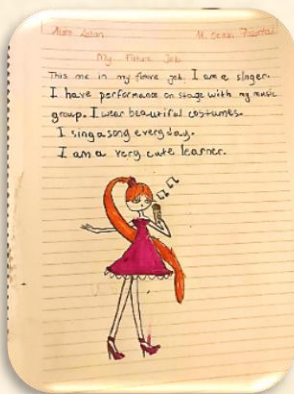 My Future Job
This me in my future job. I am a singer.
I have performance on stage with my music
group. I wear beautiful costumes.
I sing a song every day.
I am a very cute learner.